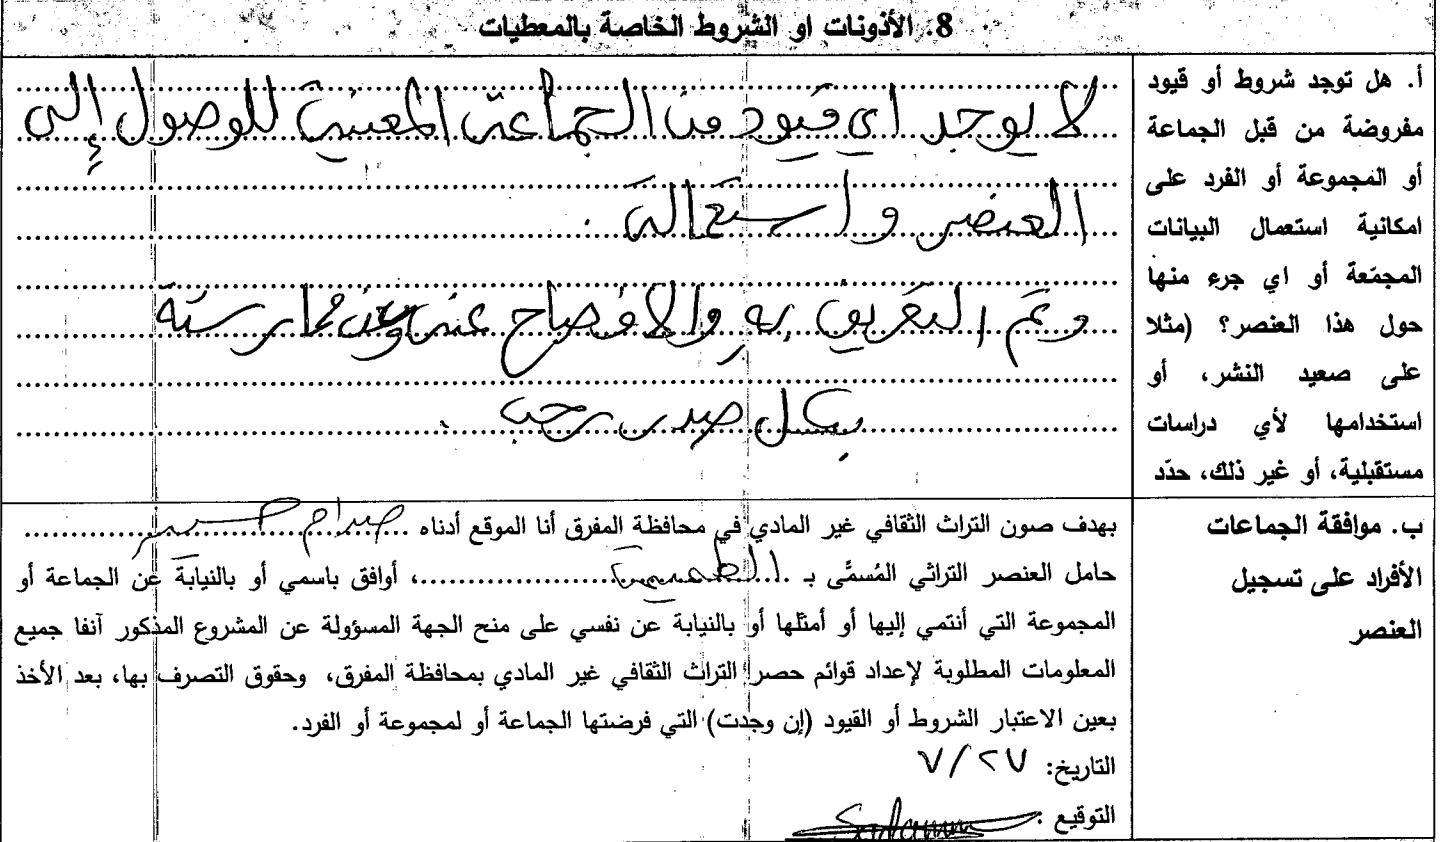 8. الأذونات او الشروط الخاصة بالمعطيات
أ. هل توجد شروط أو قيود
مفروضة من قبل الجماعة
أو المجموعة أو الفرد على
امكانية استعمال البيانات
المجمّعة أو اي جرء منها
حول هذا العنصر؟ (مثلا
على صعيد النشر، أو
استخدامها لأي دراسات
مستقبلية، أو غير ذلك، حدّد
لا يوجد اي قيود من الجماعة المعنية للوصول إلى
العنصر و استعماله .
وتم التعريف به والافصاح عنه وعن ممارسته
بكل صدر رحب .
ب. موافقة الجماعات
الأفراد على تسجيل
العنصر
بهدف صون التراث الثقافي غير المادي في محافظة المفرق أنا الموقع أدناه صدام
حامل العنصر التراثي المُسمَّى بـ ، أوافق باسمي أو بالنيابة عن الجماعة أو
المجموعة التي أنتمي إليها أو أمثلها أو بالنيابة عن نفسي على منح الجهة المسؤولة عن المشروع المذكور آنفا جميع
المعلومات المطلوبة لإعداد قوائم حصر التراث الثقافي غير المادي بمحافظة المفرق، وحقوق التصرف بها، بعد الأخذ
بعين الاعتبار الشروط أو القيود (إن وجدت) التي فرضتها الجماعة أو لمجموعة أو الفرد.
التاريخ: ٧/٢٧
التوقيع :